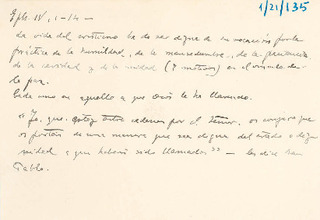 1/21/135
Eph. IV, 1-14 —
La vida del cristiano ha de ser digna de su vocación por la
práctica de la humildad, de la mansedumbre, de la paciencia
de la caridad y de la unidad (7 motivos) en el vínculo de
la paz.
Cada uno en aquello a que Dios le ha llamado.
« Yo, que estoy entre cadenas por el Señor, os conjuro que
os portéis de una manera que sea digna del estado o dig
nidad a que habéis sido llamados » — les dice San
Pablo.